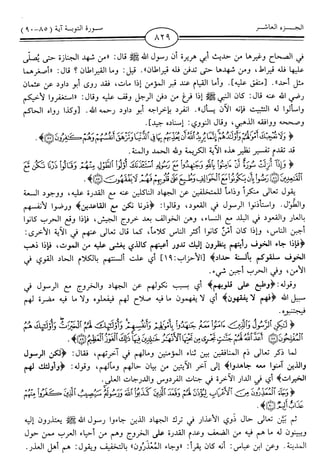 الجزء العاشر
٨٢٩
سورة التوبة آية (٨٥-٩٠)
في الصحاح وغيرها من حديث أبي هريرة أن رسول الله ﷺ قال: «من شهد الجنازة حتى يُصلّى
عليها فله قيراط، ومن شهدها حتى تدفن فله قيراطان». قيل: وما القيراطان؟ قال: «أصغرهما
مثل أحد». [متفق عليه]. وأما القيام عند قبر المؤمن إذا مات، فقد روى أبو داود عن عثمان
رضي الله عنه قال: كان النبي ﷺ إذا فرغ من دفن الرجل وقف عليه وقال: «استغفروا لأخيكم
واسألوا له التثبيت فإنه الآن يسأل». انفرد بإخراجه أبو داود رحمه الله. [وكذا رواه الحاكم
وصححه ووافقه الذهبي، وقال النووي: إسناده جيد].
﴿وَلَا تُعْجِبْكَ أَمْوَالُهُمْ وَأَوْلَادُهُمْ إِنَّمَا يُرِيدُ اللَّهُ أَنْ يُعَذِّبَهُمْ بِهَا فِي الدُّنْيَا وَتَزْهَقَ أَنْفُسُهُمْ وَهُمْ كَافِرُونَ﴾.
قد تقدم تفسير نظير هذه الآية الكريمة ولله الحمد والمنة.
﴿وَإِذَا أُنْزِلَتْ سُورَةٌ أَنْ آمِنُوا بِاللَّهِ وَجَاهِدُوا مَعَ رَسُولِهِ اسْتَأْذَنَكَ أُولُو الطَّوْلِ مِنْهُمْ وَقَالُوا ذَرْنَا نَكُنْ مَعَ
الْقَاعِدِينَ رَضُوا بِأَنْ يَكُونُوا مَعَ الْخَوَالِفِ وَطُبِعَ عَلَى قُلُوبِهِمْ فَهُمْ لَا يَفْقَهُونَ﴾.
يقول تعالى منكراً وذاماً للمتخلفين عن الجهاد الناكلين عنه مع القدرة عليه، ووجود السعة
والطَّوْل، واستأذنوا الرسول في القعود، وقالوا: ﴿ذرنا نكن مع القاعدين﴾ ورضوا لأنفسهم
بالعار والقعود في البلد مع النساء، وهن الخوالف بعد خروج الجيش، فإذا وقع الحرب كانوا
أجبن الناس، وإذا كان أَمْنٌ كانوا أكثر الناس كلاماً، كما قال تعالى عنهم في الآية الأخرى:
﴿فإذا جاء الخوف رأيتهم ينظرون إليك تدور أعينهم كالذي يغشى عليه من الموت، فإذا ذهب
الخوف سلقوكم بألسنة حداد﴾ [الأحزاب: ١٩] أي علت ألسنتهم بالكلام الحاد القوي في
الأمن، وفي الحرب أجبن شيء.
وقوله: ﴿وطبع على قلوبهم﴾ أي بسبب نكولهم عن الجهاد والخروج مع الرسول في
سبيل الله ﴿فهم لا يفقهون﴾ أي لا يفهمون ما فيه صلاح لهم فيفعلوه ولا ما فيه مضرة لهم
فيجتنبوه.
﴿لَكِنِ الرَّسُولُ وَالَّذِينَ آمَنُوا مَعَهُ جَاهَدُوا بِأَمْوَالِهِمْ وَأَنْفُسِهِمْ وَأُولَئِكَ لَهُمُ الْخَيْرَاتُ وَأُولَئِكَ هُمُ
الْمُفْلِحُونَ أَعَدَّ اللَّهُ لَهُمْ جَنَّاتٍ تَجْرِي مِنْ تَحْتِهَا الْأَنْهَارُ خَالِدِينَ فِيهَا ذَلِكَ الْفَوْزُ الْعَظِيمُ﴾.
لما ذكر تعالى ذم المنافقين بين ثناء المؤمنين ومالهم في آخرتهم، فقال: ﴿لكن الرسول
والذين آمنوا معه جاهدوا﴾ إلى آخر الآيتين من بيان حالهم ومآلهم، وقوله: ﴿وأولئك لهم
الخيرات﴾ أي في الدار الآخرة في جنات الفردوس والدرجات العلى.
﴿وَجَاءَ الْمُعَذِّرُونَ مِنَ الْأَعْرَابِ لِيُؤْذَنَ لَهُمْ وَقَعَدَ الَّذِينَ كَذَبُوا اللَّهَ وَرَسُولَهُ سَيُصِيبُ الَّذِينَ كَفَرُوا مِنْهُمْ
عَذَابٌ أَلِيمٌ﴾.
ثم بَيَّن تعالى حال ذَوِي الأعذار في ترك الجهاد الذين جاءوا رسول الله ﷺ يعتذرون إليه
ويبينون له ما هم فيه من الضعف وعدم القدرة على الخروج وهم من أحياء العرب ممن حول
المدينة. وعن ابن عباس: أنه كان يقرأ: «وجاء المُعْذِرُون» بالتخفيف ويقول: هم أهل العذر.